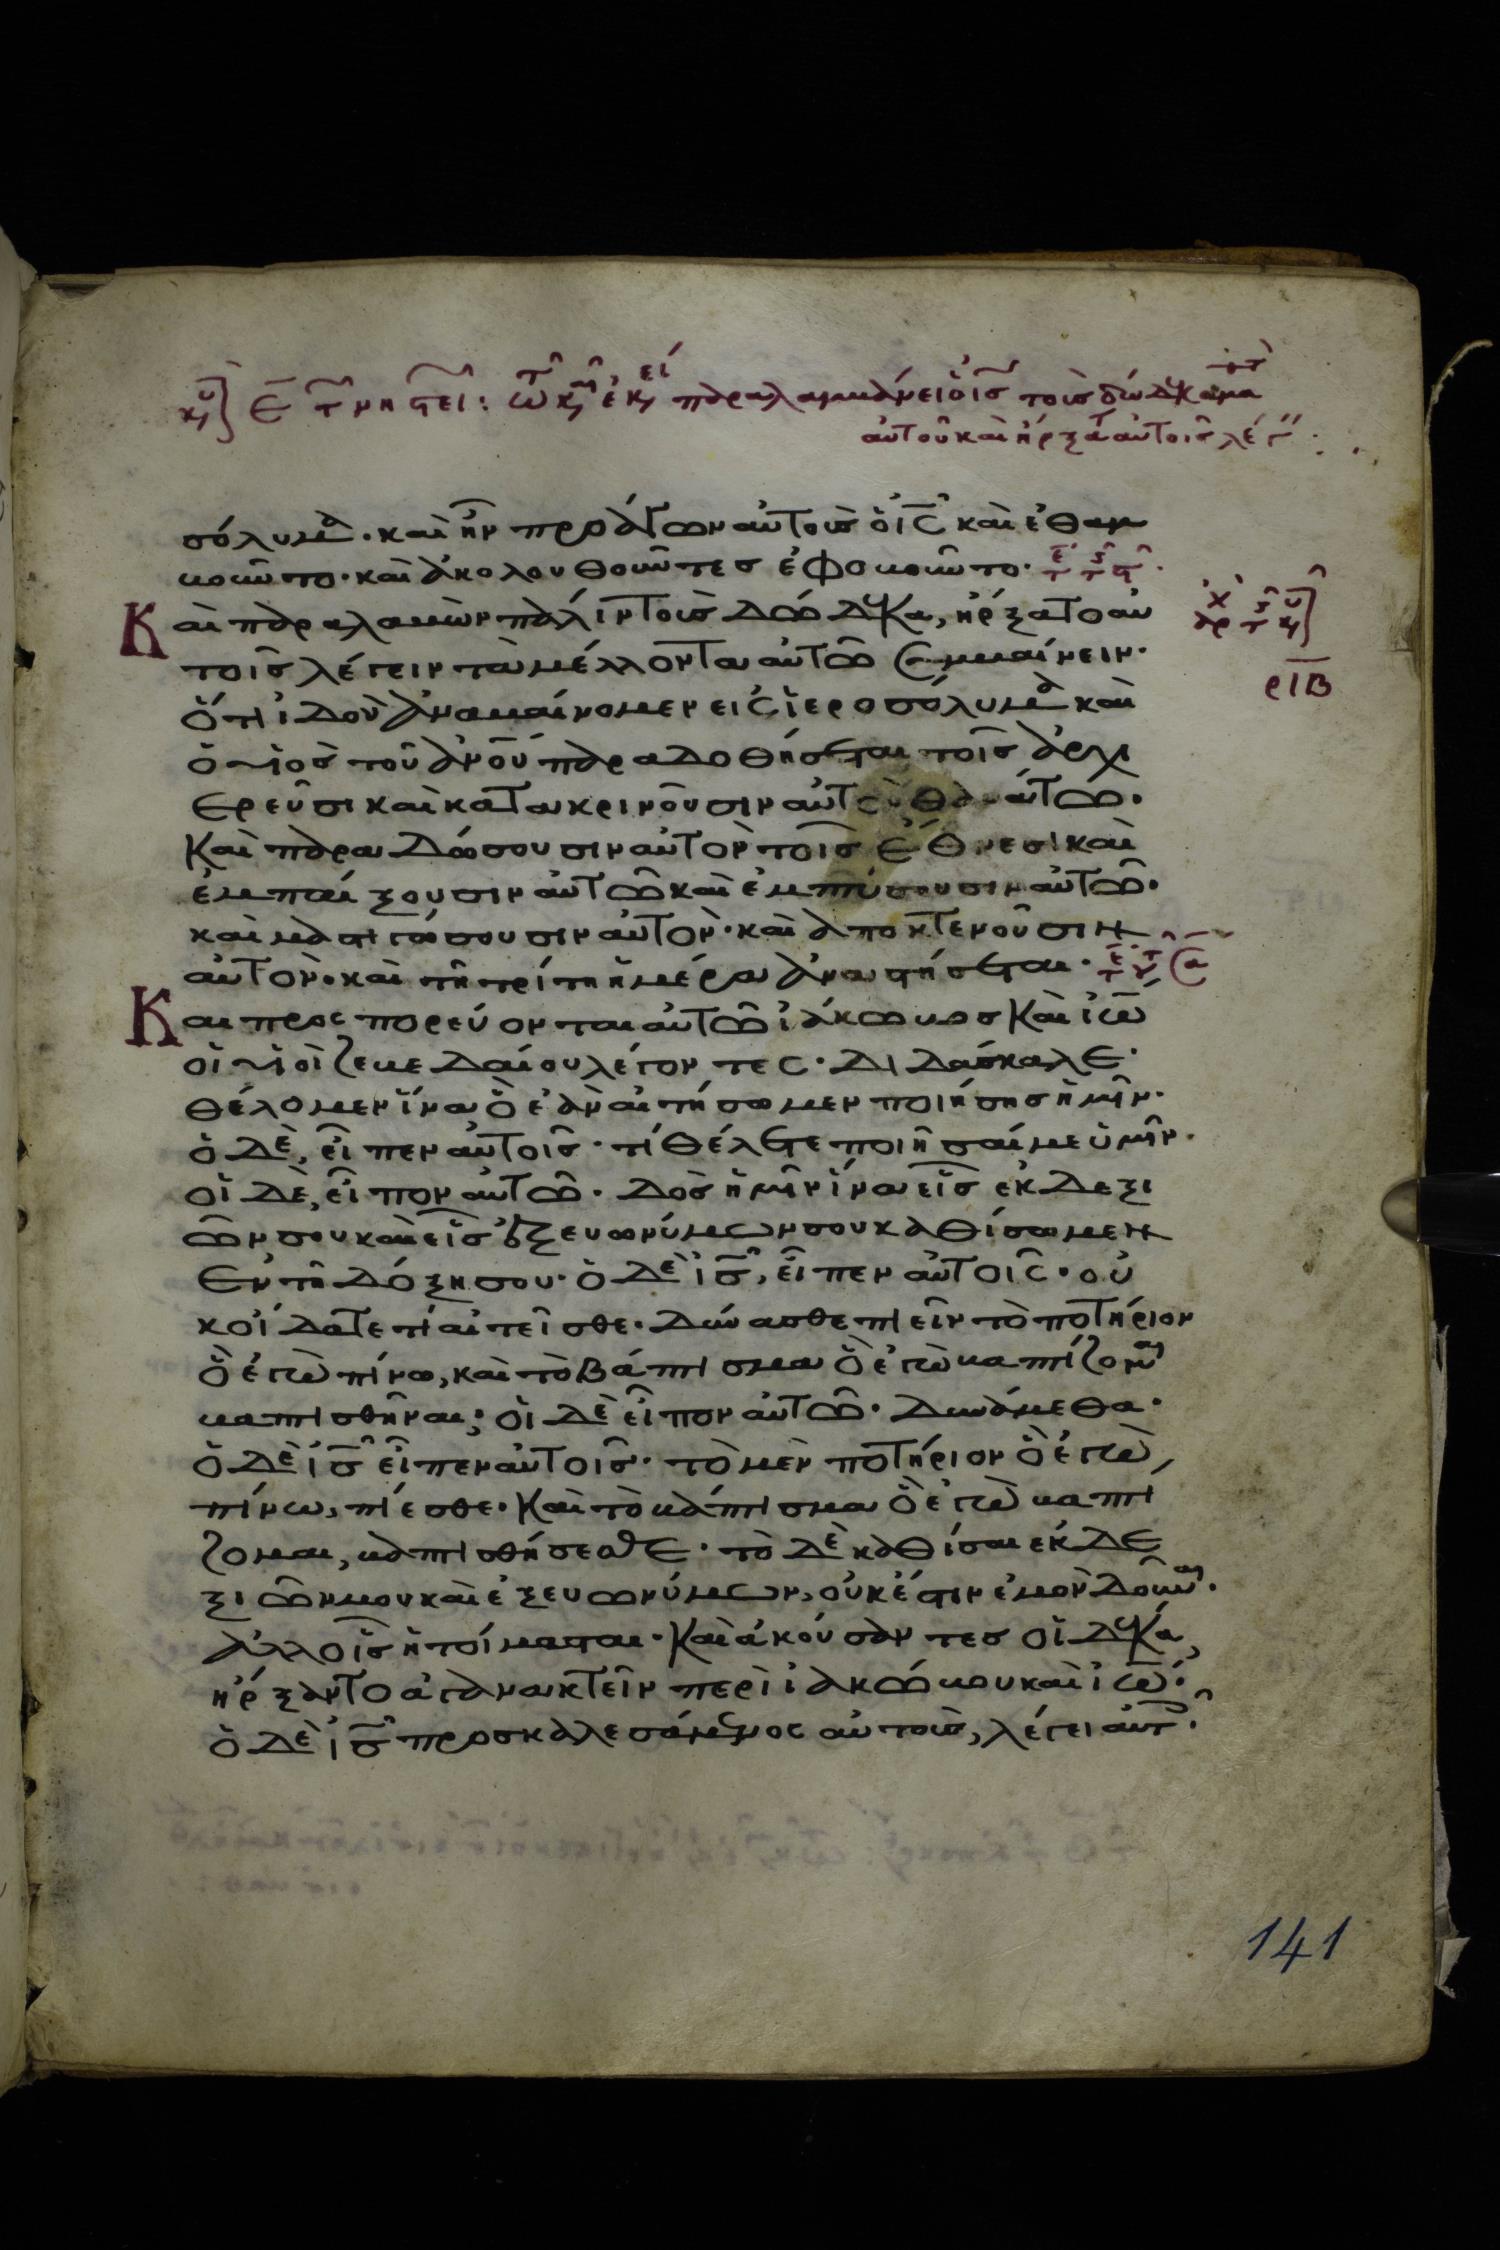 κυ] ε τ νηστει: τω κρω εκει παραλαμβάνει ὁ ις τοὺς δώδεκα μα
αὐτοῦ καὶ ἤρξατ αὐτοῖς λέγ
σόλυμα· καὶ ἦν προάγων αὐτοὺς ὁ ις καὶ ἐθαμ
βοῦντο· καὶ ἀκολουθοῦντες ἐφοβοῦντο·
Καὶ παραλαβὼν πάλιν τοὺς δώδεκα, ἤρξατο αὐ
τοῖς λέγειν τὰ μέλλοντα αὐτῶ συμβαίνειν·
ὅτι ἰδοὺ ἀναβαίνομεν εἰς ἱεροσόλυμα καὶ
ριβ
ὁ υἱὸς τοῦ ανου παραδοθήσεται τοῖς ἀρχι
ερεῦσι καὶ κατακρινοῦσιν αὐτὸν θανάτω·
Καὶ παραδώσουσιν αὐτὸν τοῖς ἔθνεσι καὶ
ἐμπαίξουσιν αὐτῶ καὶ ἐμπτύσουσιν αὐτῶ·
καὶ μαστιγώσουσιν αὐτὸν· καὶ ἀποκτενοῦσιν
αὐτὸν· καὶ τῆ τρίτη ἡμέρα ἀναστήσεται·
Και προσπορεύονται αὐτῶ ἰάκωβος Καὶ ἰω
οἱ υἱοὶ ζεβεδαίου λέγοντες· Διδάσκαλε·
θέλομεν ἵνα ὃ ἐὰν αἰτήσωμεν ποιήσης ἡμῖν·
ὁ δὲ, εἶπεν αὐτοῖς· τί θέλετε ποιῆσαί με ὑμῖν·
οἱ δὲ, εἶπον αὐτῶ· Δὸς ἡμῖν ἵνα εἷς ἐκ δεξι
ῶν σου καὶ εἷς ἐξ ευωνύμων σου καθίσωμεν
Ἐν τῆ δόξη σου· ὁ δὲ ις, εἶπεν αὐτοῖς· οὐ
κ οἴδατε τί αἰτεῖσθε· Δύνασθε πιεῖν τὸ ποτήριον
ὃ ἐγὼ πίνω, καὶ τὸ βάπτισμα ὃ ἐγὼ βαπτίζομαι
βαπτισθῆναι; οἱ δὲ εἶπον αὐτῶ· Δυνάμεθα·
ὁ δὲ ις εἶπεν αὐτοῖς· τὸ μὲν ποτήριον ὃ ἐγὼ,
πίνω, πίεσθε· Καὶ τὸ βάπτισμα ὃ ἐγὼ βαπτι
ζομαι, βαπτισθήσεσθε· τὸ δὲ καθίσαι ἐκ δε
ξιῶν μου καὶ ἐξ ευωνύμων, οὐκ ἔστιν ἐμὸν δοῦναι·
ἀλλ οἷς ἡτοίμασται· Καὶ ἀκούσαντες οἱ δέκα,
ἤρξαντο ἀγανακτεῖν περὶ ἰακώβου καὶ ἰω·
ὁ δὲ ις προσκαλεσάμενος αὐτοὺς, λέγει αὐτ·
141